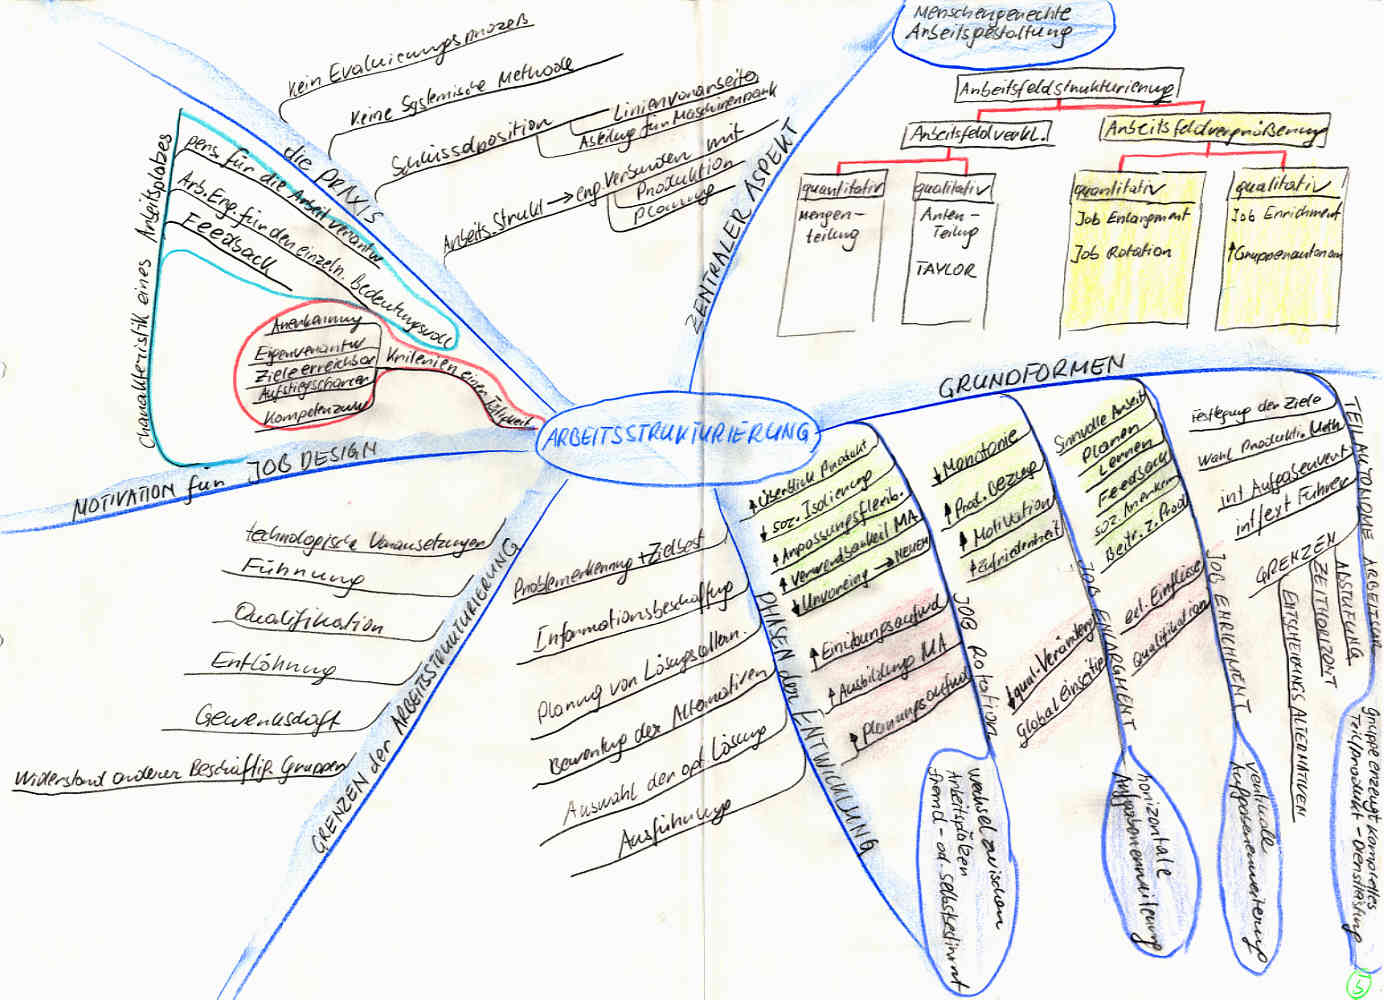 Menschengerechte
Arbeitsgestaltung
Arbeitsfeldstrukturierung
Arbeitsfeldverkl.
Arbeitsfeldvergrößerung
quantitativ
Mengen-
teilung
qualitativ
Arten-
Teilung
TAYLOR
quantitativ
Job Enlargment
Job Rotation
qualitativ
Job Enrichment
↑Gruppenautonom
ZENTRALER ASPEKT
die PRAXIS
Kein Evaluierungsprozeß
Keine Systemische Methode
Schlüsselposition
Linienvorarbeiter
Abteilung für Maschinenpark
Arbeits.strukt → eng verbunden mit
Produktion
Planung
Charakteristik eines Arbeitsplatzes
pers. für die Arbeit verantw
Arb.Erg. für den einzeln. Bedeutungsvoll
Feedback
Kriterien einer Tätigkeit
Anerkennung
Eigenverantw
Ziele erreichbar
Aufstiegschancen
Kompetenzen
MOTIVATION für JOB DESIGN
ARBEITSSTRUKTURIERUNG
GRENZEN der ARBEITSSTRUKTURIERUNG
technologische Voraussetzungen
Führung
Qualifikation
Entlöhnung
Gewerkschaft
Widerstand anderer Beschäftig. Gruppen
PHASEN der ENTWICKLUNG
Problemerkennung + Zielbest
Informationsbeschaffung
Planung von Lösungsaltern.
Bewertung der Alternativen
Auswahl der opt. Lösung
Ausführung
GRUNDFORMEN
JOB ROTATION
↑Überblick Produkt
↓ soz. Isolierung
↑Anpassungsflexib.
↑ Verwendbarkeit MA
↓Unvoreing → NEUEM
↑ Einübungsaufwd
↑ Ausbildung MA
↑ Planungsaufwd
Wechsel zwischen
Arbeitsplätzen
fremd- od. selbstbestimmt
JOB ENLARGMENT
↓Monotonie
↑Prod. Bezug
↑ Motivation
↑Zufriedenheit
↓qual. Veränderg
Global einseitig
horizontale
Aufgabenerweiterung
JOB ENRICHMENT
Sinnvolle Arbeit
Planen
Lernen
Feedback
soz. Anerkenn
Beitr. z. Prod
ext. Einflüsse
Qualifikation
vertikale
Aufgabenerweiterung
TEILAUTONOME ARBEITSGR
Festlegung der Ziele
Wahl Produktio. Meth
int Aufgabenvert
int/ext Führer
GRENZEN
ABSTUFUNG
ZEITHORIZONT
ENTSCHEIDUNGSALTERNATIVEN
Gruppe erzeugt komplettes
Teil/produkt - Dienstleistung
5